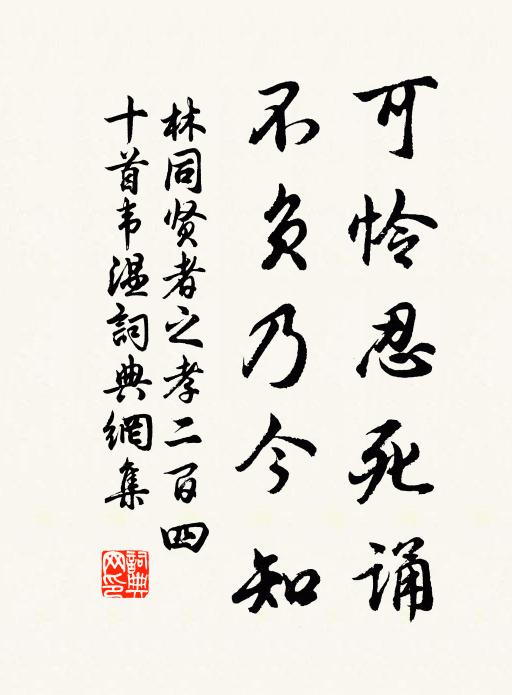 可怜忍死诵
不负乃今知
林同贤者之孝二百四
十首韦温詞典網集
詞典网印